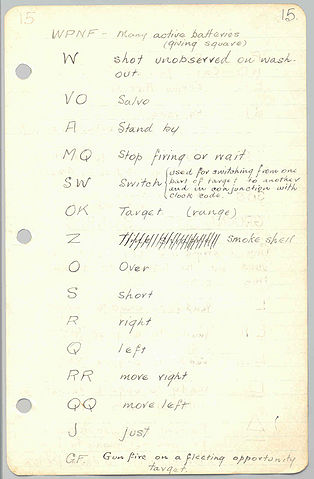 15
15.
WPNF - Many active batteries
(giving square)
W shot unobserved or wash-
out.
VO Salvo
A Stand by
MQ Stop firing or wait
SW Switch { used for switching from one
part of target to another
and in conjunction with
clock code.
OK Target (range)
Z smoke shell
O Over
S short
R right
Q left
RR move right
QQ move left
J just
G.F. Gun fire on a fleeting opportunity
target.